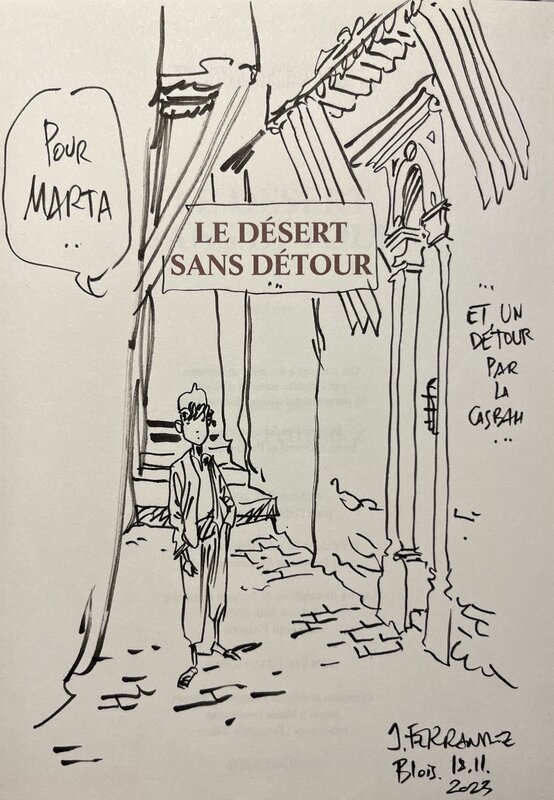 POUR
MARTA
..
LE DÉSERT
SANS DÉTOUR
...
ET UN
DÉTOUR
PAR
LA
CASBAH
...
J. FERRANDEZ
Blois. 18.11.
2023